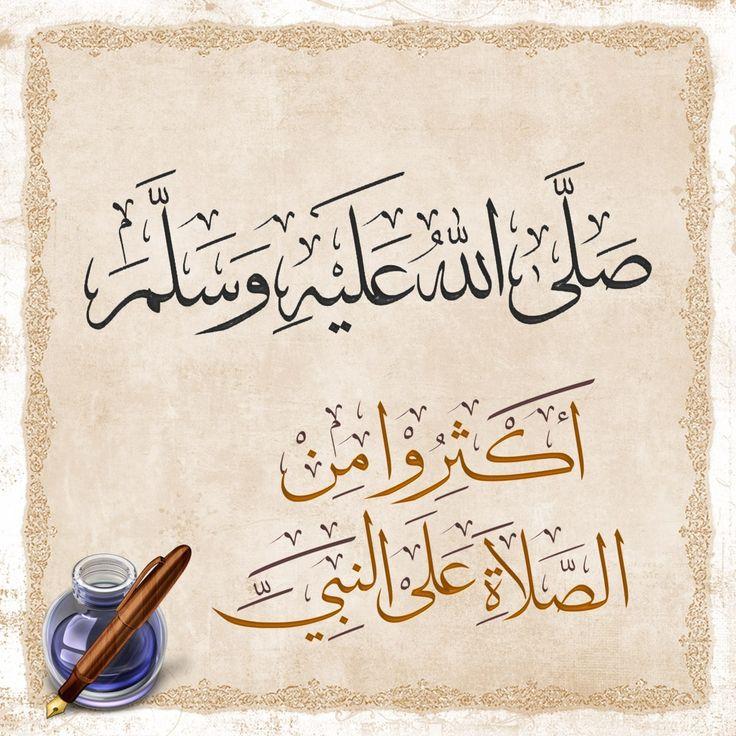 صَلَّى اللَّهُ عَلَيْهِ وَسَلَّمَ
أَكْثِرُوا مِنْ
الصَّلَاةِ عَلَى النَّبِيِّ